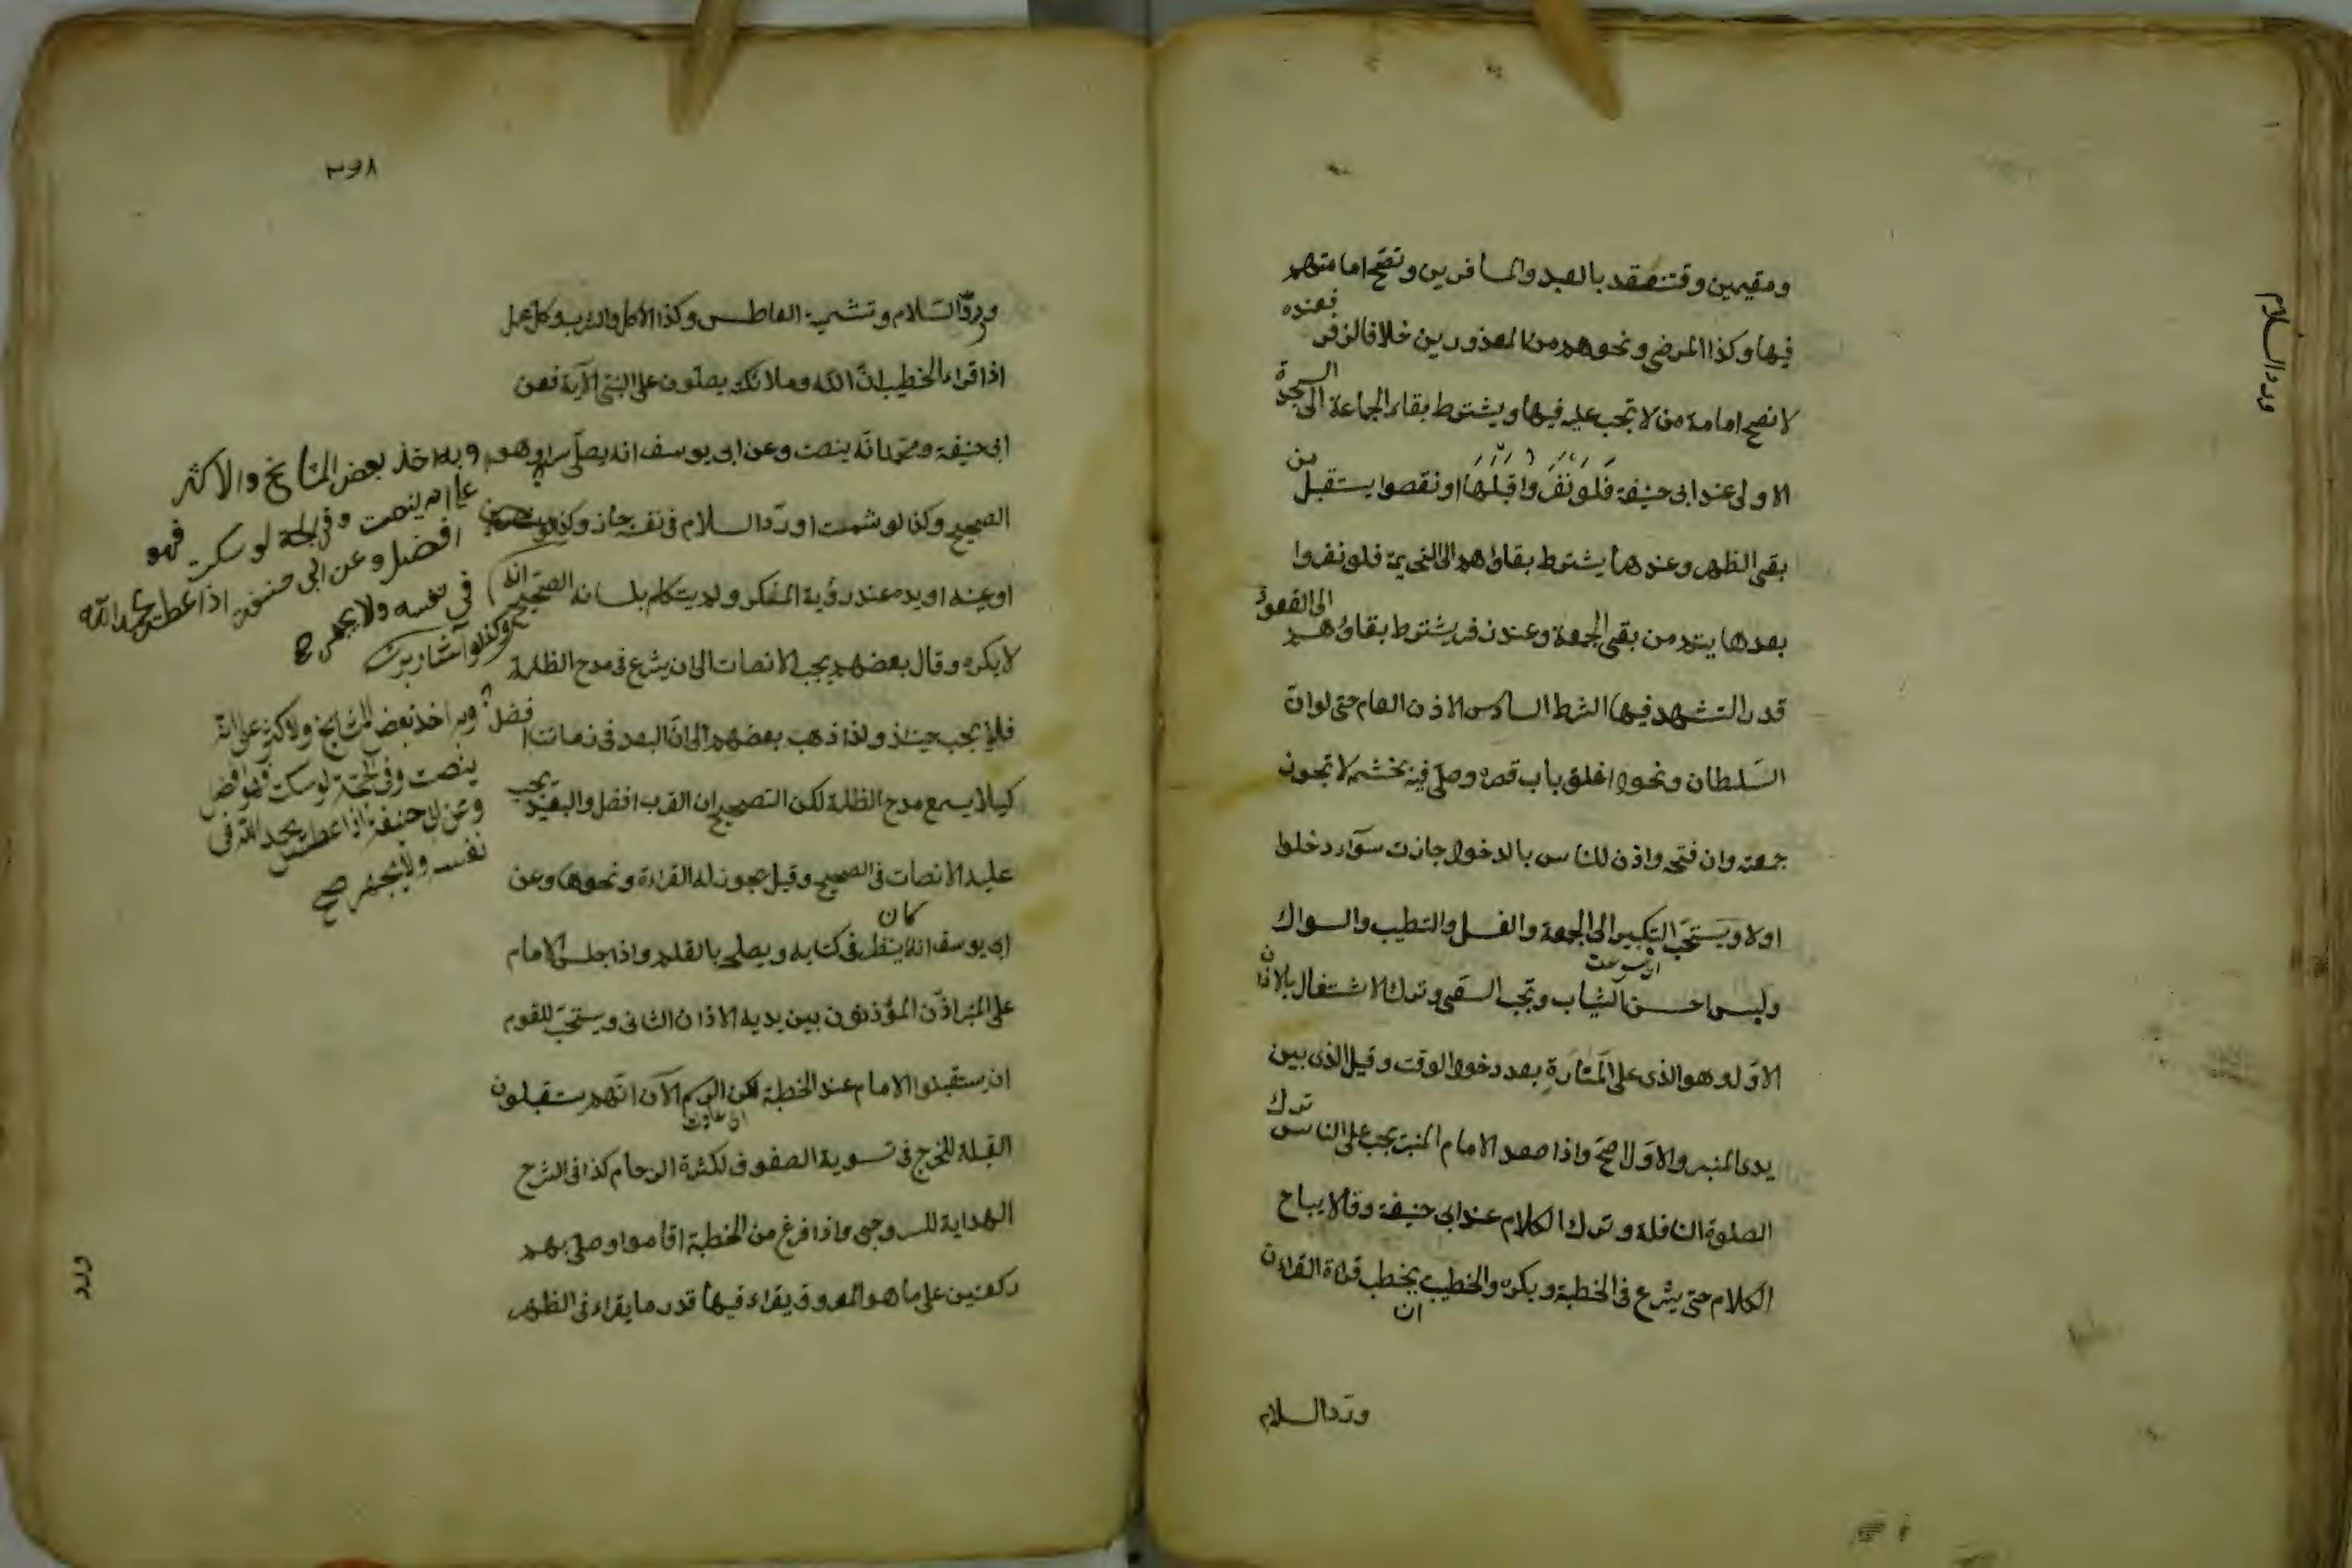 ومقيمين وقتنعقد بالعبد والمسافرين وتصح امامتهم
فيها وكذا المرضى ونحوهم من المعذورين خلافا لزفر فعنده
لا تصح امامة من لا تجب عليه فيها ويشترط بقاء الجماعة الى السجدة
الاولى عند ابى حنيفة فلو نفروا قبلها او نقصوا يستقبل من
بقى الظهر وعندهما يشترط بقاؤهم الى التحريمة فلو نفروا
بعدها يتم من بقى الجمعة وعند زفر يشترط بقاؤهم الى القعود
قدر التشهد فيها الشرط السادس الاذن العام حتى لو ان
السلطان ونحوه اغلق باب قصره وصلى فيه بحشمه لا تجوز
جمعته وان فتحه واذن للناس بالدخول جازت سواء دخلوا
اولا ويستحب التبكير الى الجمعة والغسل والتطيب والسواك
ولبس احسن الثياب ويجب السعى وترك الاشتغال بالاذان
الاول وهو الذى على المنارة بعد دخول الوقت وقيل الذى بين
يدى المنبر والاول اصح واذا صعد الامام المنبر يجب على الناس ترك
الصلوة النافلة وترك الكلام عند ابى حنيفة وقالا يباح
الكلام حتى يشرع فى الخطبة ويكره والخطيب يخطب قراءة القران
ان
ورد السلام
ورد السلام
٢٩٨
ورد السلام وتشميت العاطس وكذا الاكل والشرب وكل عمل
اذا قراء الخطيب ان الله وملائكته يصلون على النبى الآية فعن
ابى حنيفة ومحمد انه ينصت وعن ابى يوسف انه يصلى سرا وهو
الصحيح وكذا لو شمت او رد السلام فى نفسه جاز وكذا
او عينه او يده عند رؤية المنكر ولم يتكلم بلسانه الصحيح انه
لا يكره وقال بعضهم يجب الانصات الى ان يشرع فى مدح الظلمة
فلا يجب حينئذ ولذا ذهب بعضهم الى ان البعد فى زماننا افضل
كيلا يسمع مدح الظلمة لكن الصحيح ان القرب افضل والبعيد يجب
عليه الانصات فى الصحيح وقيل يجوز له القراءة ونحوها وعن
ابى يوسف انه كان ينظر فى كتابه ويصلحه بالقلم واذا جلس الامام
على المنبر اذن المؤذنون بين يديه الاذان الثانى ويستحب للقوم
ان يستقبلوا الامام عند الخطبة لكن الرسم الآن انهم يستقبلون
القبلة للحرج فى تسوية الصفوف لكثرة الزحام كذا فى الشرح
الهداية للسروجى واذا فرغ من الخطبة اقاموا وصلى بهم
ركعتين على ما هو المعروف يقراء فيهما قدر ما يقراء فى الظهر
وبه اخذ بعض المشايخ والاكثر
على انه ينصت وفى الحجة لو سكت فهو
افضل وعن ابى حنيفة اذا عطس يحمد الله
فى نفسه ولا يجهر
وكذا لو اشار برأسه
وبه اخذ بعض المشايخ والاكثر على انه
ينصت وفى الحجة لو سكت فهو افضل
وعن ابى حنيفة اذا عطس يحمد الله فى
نفسه ولا يجهر صح
ورد